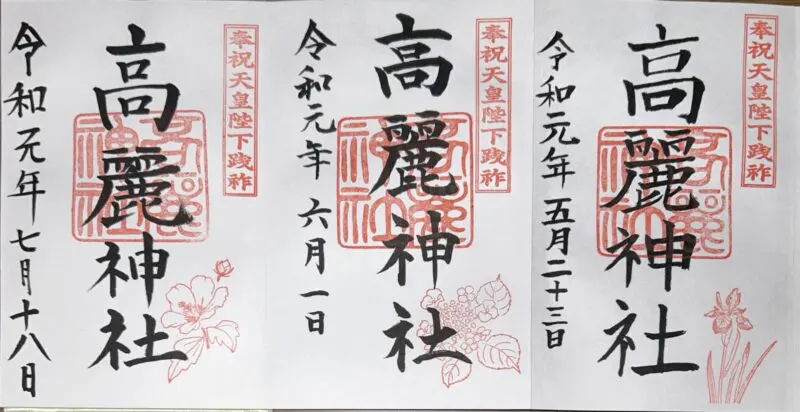 奉祝天皇陛下践祚
高麗神社
令和元年五月二十三日
奉祝天皇陛下践祚
高麗神社
令和元年六月一日
奉祝天皇陛下践祚
高麗神社
令和元年七月十八日